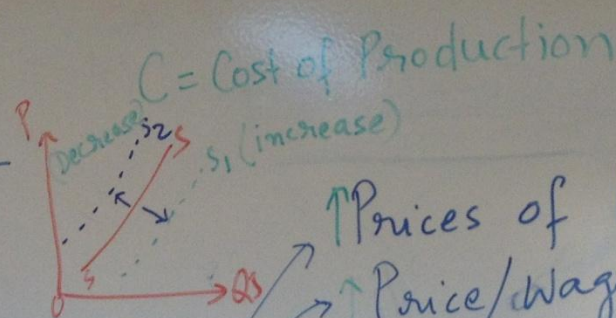 C = Cost of Production
P
(Decrease) S2 S
S1 (increase)
↑Prices of
S
O QS
↑ Price/Wag